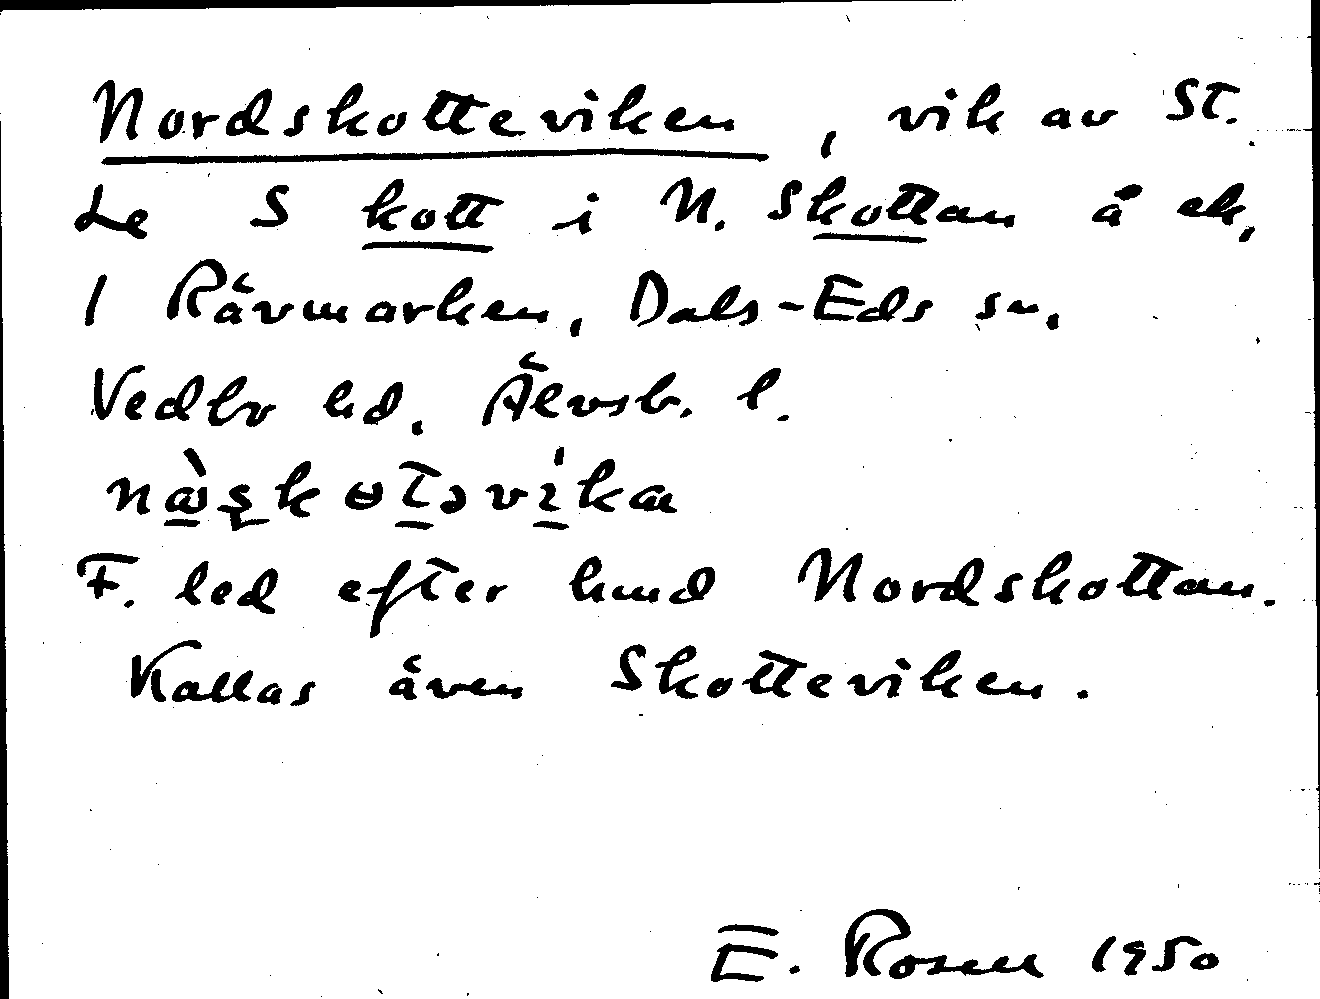 Nordskotteviken, vik av St.
Le S kott i N. Skottan å ek,
1 Rävmarken, Dals-Eds sn,
Vedbo hd. Älvsb. l.
næ̀ʂkɵtəvi̍ka
F. led efter hmd Nordskottan.
Kallas även Skotteviken.
E. Rosell 1950